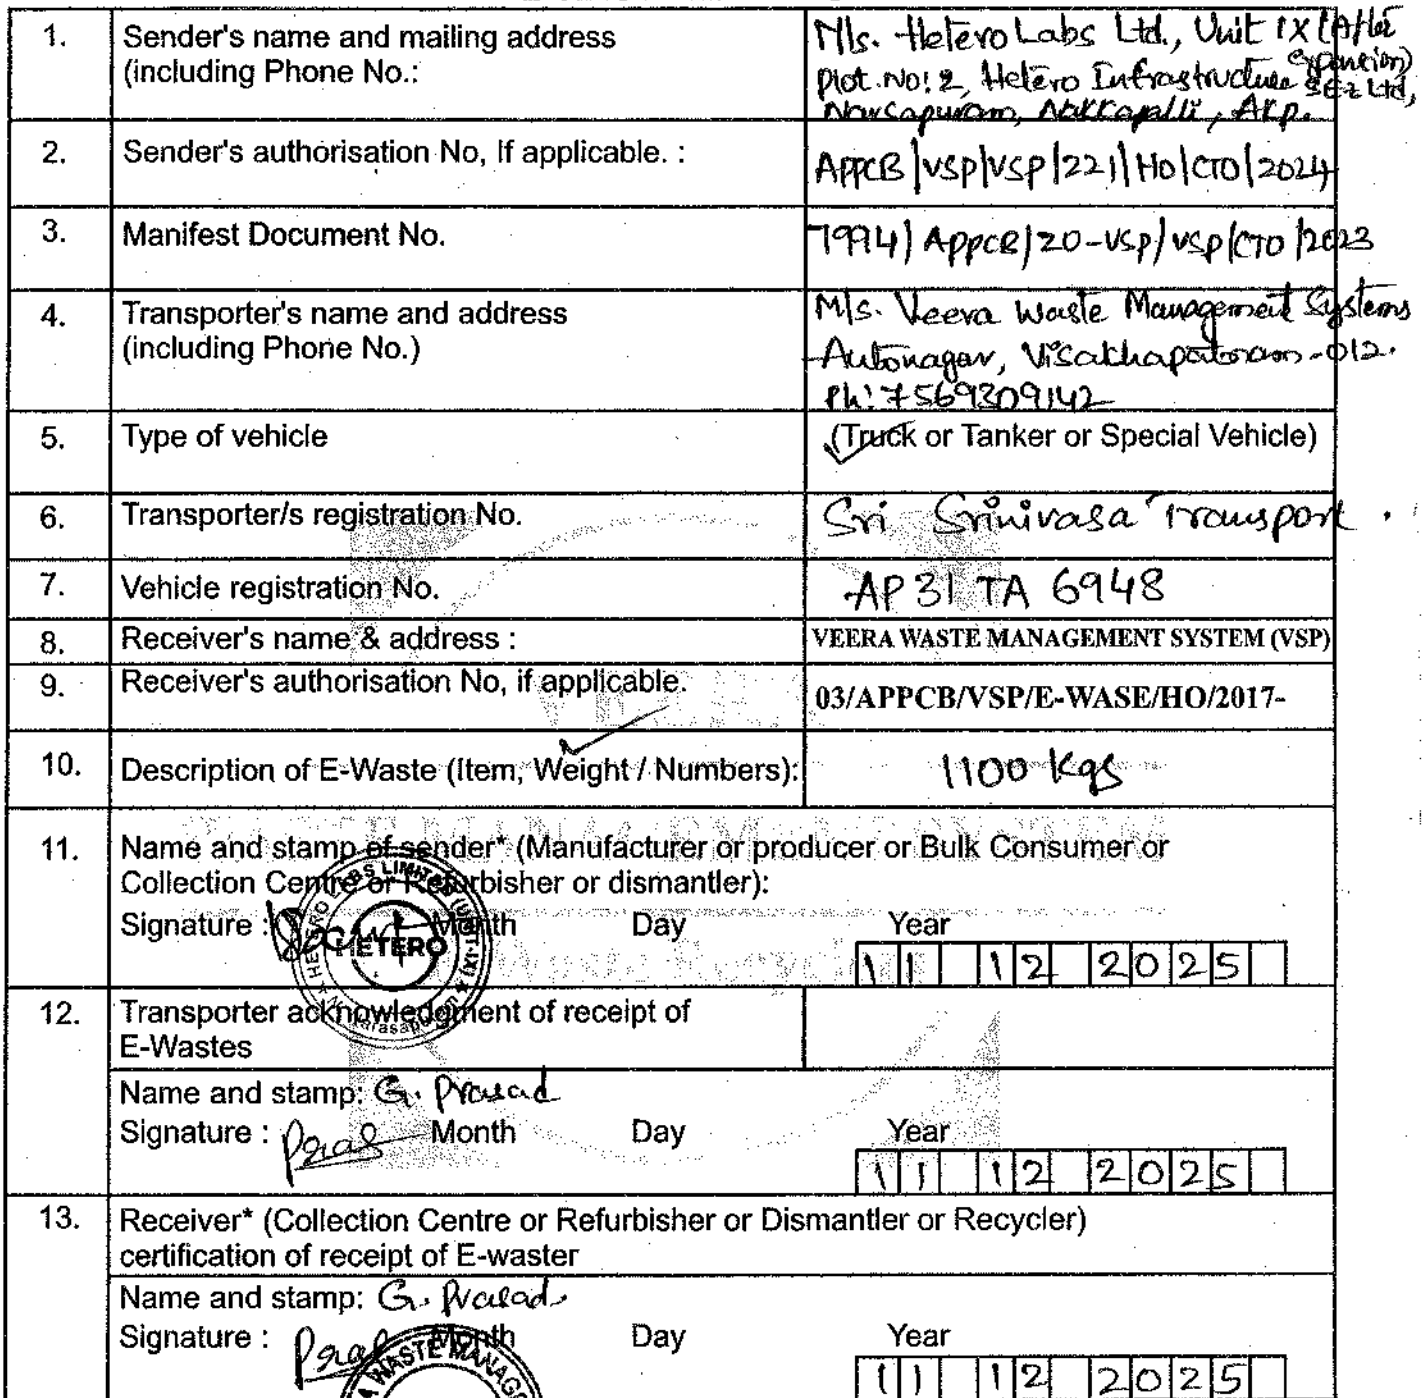 1. Sender's name and mailing address
(including Phone No.:
M/s. Hetero Labs Ltd., Unit IX (After expansion)
Plot.No: 2, Hetero Infrastructure SEZ Ltd,
Narsapuram, Nakkapalli, AKP.
2. Sender's authorisation No, If applicable. :
APPCB/VSP/VSP/221/HO/CTO/2024
3. Manifest Document No.
7994/APPCB/20-VSP/VSP/CTO/2023
4. Transporter's name and address
(including Phone No.)
M/s. Veera Waste Management Systems
Autonagar, Visakhapatnam-012.
Ph: 7569309142
5. Type of vehicle
(Truck or Tanker or Special Vehicle)
6. Transporter/s registration No.
Sri Srinivasa Transport.
7. Vehicle registration No.
AP 31 TA 6948
8. Receiver's name & address :
VEERA WASTE MANAGEMENT SYSTEM (VSP)
9. Receiver's authorisation No, if applicable.
03/APPCB/VSP/E-WASE/HO/2017-
10. Description of E-Waste (Item, Weight / Numbers):
1100 Kgs
11. Name and stamp of sender* (Manufacturer or producer or Bulk Consumer or
Collection Centre or Refurbisher or dismantler):
Signature : Month Day Year
11 12 2025
HETERO LABS LIMITED (UNIT-IX)
HETERO
12. Transporter acknowledgment of receipt of
E-Wastes
Name and stamp: G. Prasad
Signature : Pras Month Day Year
11 12 2025
13. Receiver* (Collection Centre or Refurbisher or Dismantler or Recycler)
certification of receipt of E-waster
Name and stamp: G. Prasad
Signature : Pras Month Day Year
11 12 2025
A WASTE MANAG